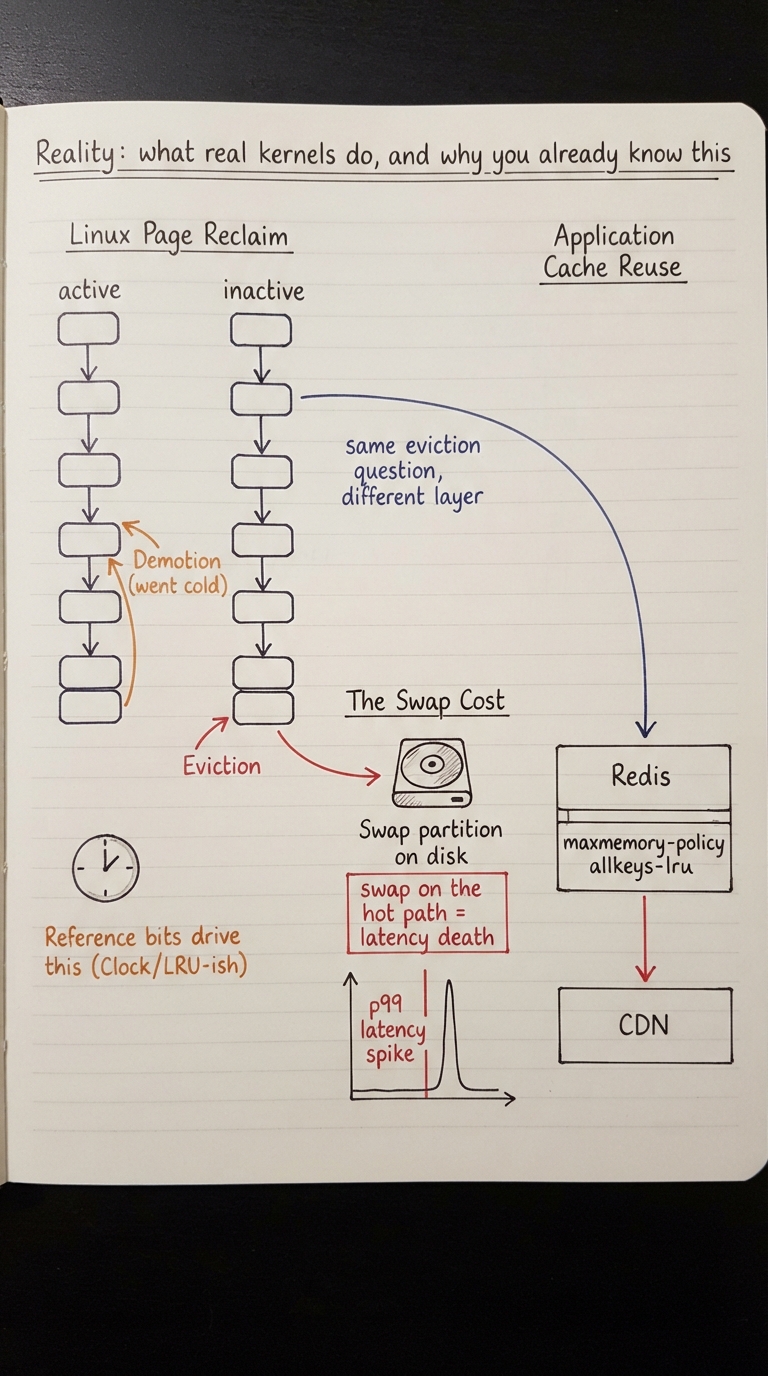 Reality: what real kernels do, and why you already know this
Linux Page Reclaim
active
inactive
Demotion
(went cold)
Eviction
Reference bits drive
this (Clock/LRU-ish)
same eviction
question,
different layer
The Swap Cost
Swap partition
on disk
swap on the
hot path =
latency death
p99
latency
spike
Application
Cache Reuse
Redis
maxmemory-policy
allkeys-lru
CDN